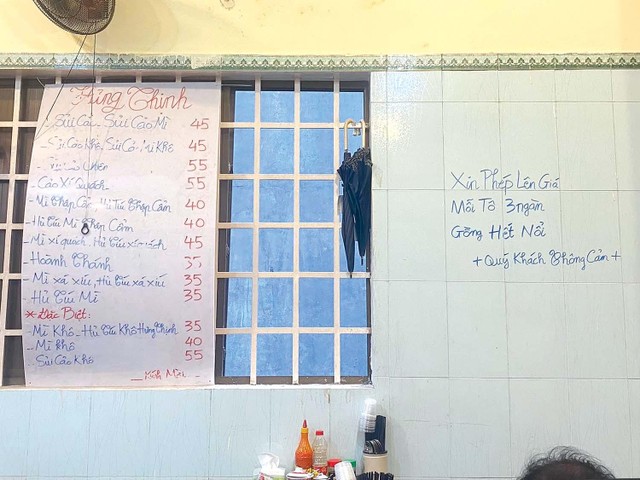 Hưng Thịnh
- Sủi Cảo, Sủi Cảo Mì 45
- Sủi Cảo Khô, Sủi Cảo Mì Khô 45
55
- Cảo Xí Quách 55
- Mì Thập Cẩm, Hủ Tíu Thập Cẩm 40
- Hủ Tíu Mì Thập Cẩm 40
- Mì xí quách, Hủ Tíu xí quách 45
- Hoành Thánh 35
- Mì xá xíu, Hủ Tíu xá xíu 35
- Hủ Tíu Mì 35
* Đặc Biệt:
- Mì Khô - Hủ Tíu Khô Hưng Thịnh 35
- Mì Khô 40
Sủi Cảo Khô 55
Kính Mời
Xin Phép Lên Giá
Mỗi Tô 3 ngàn
Gồng Hết Nổi
+ Quý Khách Thông Cảm +